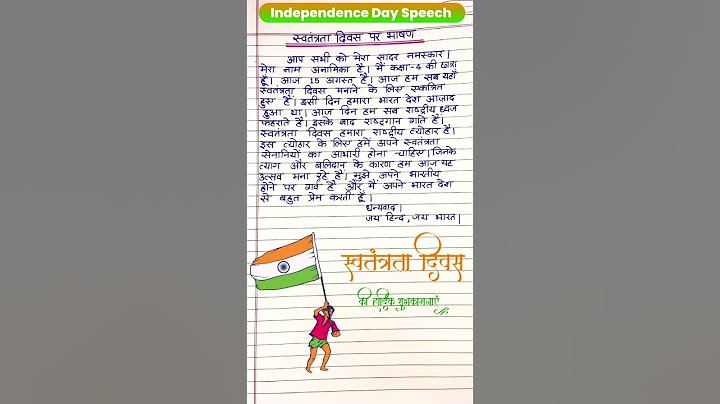 Independence Day Speech
स्वतंत्रता दिवस पर भाषण
आप सभी को मेरा सादर नमस्कार।
मेरा नाम अनामिका है। मैं कक्षा-4 की छात्रा
हूँ। आज 15 अगस्त है। आज हम सब यहाँ
स्वतंत्रता दिवस मनाने के लिए एकत्रित
हुए हैं। इसी दिन हमारा भारत देश आज़ाद
हुआ था। आज दिन हम सब राष्ट्रीय ध्वज
फहराते हैं। इसके बाद राष्ट्रगान गाते हैं।
स्वतंत्रता दिवस हमारा राष्ट्रीय त्योहार है।
इस त्योहार के लिए हमें अपने स्वतंत्रता
सेनानियों का आभारी होना चाहिए। जिनके
त्याग और बलिदान के कारण हम आज यह
उत्सव मना रहे हैं। मुझे अपने भारतीय
होने पर गर्व है और मैं अपने भारत देश
से बहुत प्रेम करती हूँ।
धन्यवाद।
जय हिन्द, जय भारत।
स्वतंत्रता दिवस
की हार्दिक शुभकामनाएं